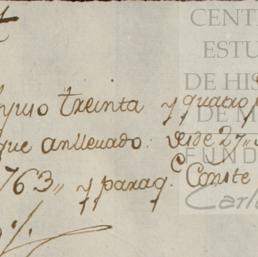 CENT
ESTU
DE HIS
DE M
FUND
Carl
treinta y quatro
que an llevado: desde 27,,
763,, y paraq.^e Conste